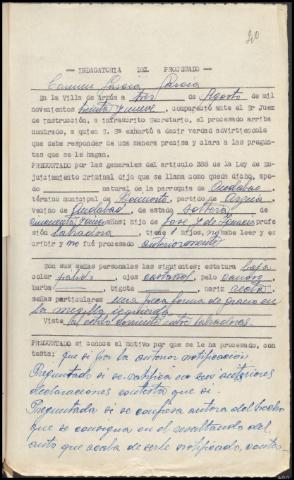 20
INDAGATORIA DEL PROCESADO
Carmen García García
En la Villa de Arzúa a tres de Agosto de mil
novecientos treinta y nueve, compareció ante el Sr Juez
de instrucción, e infrascrito Secretario, el procesado arriba
nombrado, a quien S. Sª exhortó a decir verdad advirtiéndole
que debe responder de una manera precisa y clara a las pregun-
tas que se le hagan.
PREGUNTADO por las generales del articulo 388 de la Ley de En-
juiciamiento Criminal dijo que se llama como queda dicho, apo-
do natural de la parroquia de
termino municipal de partido de Arzúa
vecino de de estado soltera de
años, hijo de José y de profe
sión labradora tiene hijos, sabe leer y es
cribir y no fué procesado anteriormente
Son sus señas personales las siguientes: estatura baja
color ojos castaños pelo
barba bigote nariz recta
señas particulares una
la mejilla izquierda
Viste
PREGUNTADO si conoce el motivo por que se le ha procesado, con-
testa: que si por la anterior notificación
Preguntado si se ratifica en sus anteriores
declaraciones contesta que si.
Preguntada si se confiesa autora del hecho
que se consigna en el resultando del
auto que acaba de serle notificado, contes-